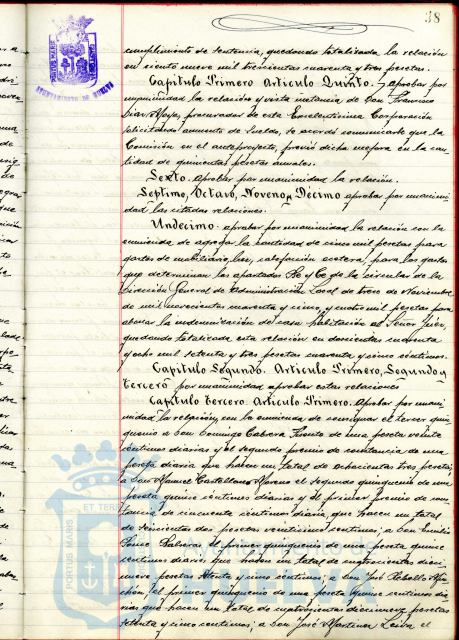 38
cumplimiento de sentencia, quedando totalizada la relación
en ciento nueve mil trescientas cuarenta y tres pesetas.
Capitulo Primero Articulo Quinto. Aprobar por
unanimidad la relación y vista instancia de Don Francisco
Diaz Moya, procurador de esta Excelentisima Corporación
solicitando aumento de sueldo, se acordó comunicarle que la
Comisión en el anteproyecto, previó dicha mejora en la can
tidad de quinientas pesetas anuales.
Sexto. Aprobar por unanimidad la relación.
Septimo, Octavo, Noveno y Decimo aprobar por unanimi
dad las citadas relaciones.
Undecimo. aprobar por unanimidad la relación con la
enmienda de agregar la cantidad de cinco mil pesetas para
gastos de mobiliario, luz, calefacción etcetera, para los gastos
que determinan los apartados B y C de la circular de la
Dirección General de Administración Local de trece de Noviembre
de mil novecientos cuarenta y cinco, y cuatro mil pesetas para
abonar la indemnización de casa habitación al Señor Juez,
quedando totalizada esta relación en doscientas cuarenta
y ocho mil setenta y tres pesetas cuarenta y cinco centimos.
Capitulo Segundo. Articulo Primero, Segundo y
Tercero por unanimidad aprobar estas relaciones
Capitulo Tercero. Articulo Primero. Aprobar por unani
midad la relación, con la enmienda de consignar el tercer quin
quenio a Don Domingo Cabrera de una peseta veinte
centimos diarias y el segundo premio de constancia de una
peseta diaria que hacen un total de ochocientas tres pesetas;
a Don Manuel Castellano Moreno el segundo quinquenio de una
peseta quince centimos diarias y el primer premio de cons
tancia de cincuenta centimos diaria, que hacen un total
de seiscientas dos pesetas veinticinco centimos; a Don Emilio
Ponce el primer quinquenio de una peseta quince
centimos diarios que hacen un total de cuatrocientas dieci
nueve pesetas setenta y cinco centimos; a Don José Rebollo
el primer quinquenio de una peseta quince centimos dia
rias que hacen un total de cuatrocientas diecinueve pesetas
setenta y cinco centimos; a Don José Martinez Leiva el
PORTUS MARIS
AYUNTAMIENTO DE HUELVA
PORTUS MARIS ET TERRAE
Ayuntamiento de
HUELVA